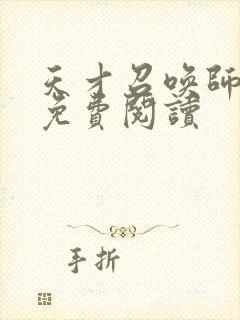 天才召喚師
免費閱讀
手折